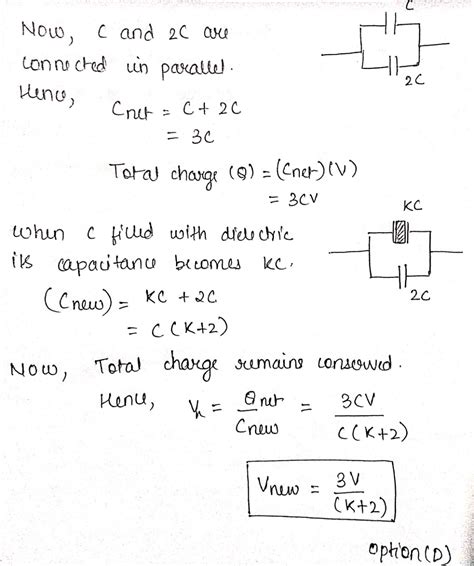 C
Now, C and 2C are
connected in parallel.
2C
Hence,
Cnet = C + 2C
= 3C
Total charge (Q) = (Cnet)(V)
= 3CV
KC
when C filled with dielectric
its capacitance becomes KC.
2C
(Cnew) = KC + 2C
= C(K+2)
Now, Total charge remains conserved.
Hence, V = Qnet / Cnew = 3CV / C(K+2)
Vnew = 3V / (K+2)
option(D)